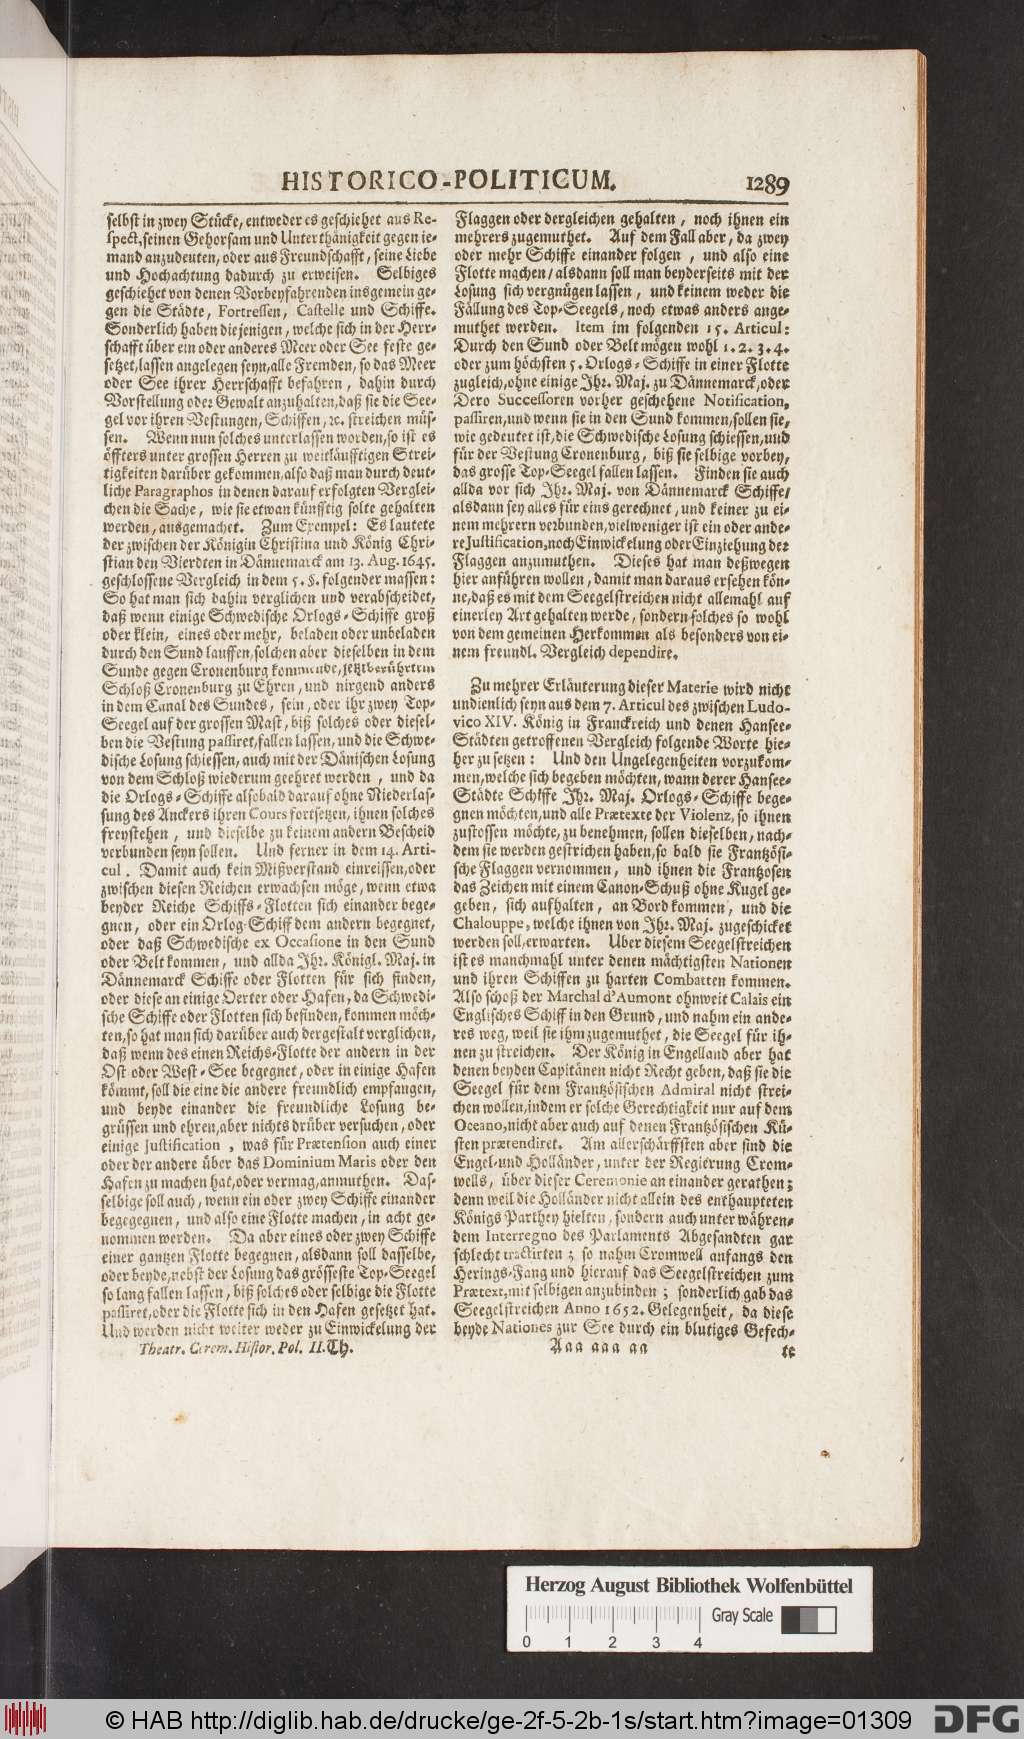 HISTORICO-POLITICUM. 1289
selbst in zwey Stücke, entweder es geschiehet aus Re-
spect, seinen Gehorsam und Unterthänigkeit gegen ie-
mand anzudeuten, oder aus Freundschafft, seine Liebe
und Hochachtung dadurch zu erweisen. Selbiges
geschiehet von denen Vorbeyfahrenden insgemein ge-
gen die Städte, Fortressen, Castelle und Schiffe.
Sonderlich haben die jenigen, welche sich in der Herr-
schafft über ein oder anderes Meer oder See feste ge-
setzet, lassen angelegen seyn, alle Fremden, so das Meer
oder See ihrer Herrschafft befahren, dahin durch
Vorstellung oder Gewalt anzuhalten, daß sie die See-
gel vor ihren Vestungen, Schiffen, ꝛc. streichen müs-
sen. Wenn nun solches unterlassen worden, so ist es
öffters unter grossen Herren zu weitläufftigen Strei-
tigkeiten darüber gekommen, also daß man durch deut-
liche Paragraphos in denen darauf erfolgten Verglei-
chen die Sache, wie sie etwan künfftig solte gehalten
werden, ausgemachet. Zum Exempel: Es lautete
der zwischen der Königin Christina und König Chri-
stian den Vierdten in Dännemarck am 13. Aug. 1645.
geschlossene Vergleich in dem 5. §. folgender massen:
So hat man sich dahin verglichen und verabscheidet,
daß wenn einige Schwedische Orlogs-Schiffe groß
oder klein, eines oder mehr, beladen oder unbeladen
durch den Sund lauffen, solchen aber dieselben in dem
Sunde gegen Cronenburg kommende, jetztberührtem
Schloß Cronenburg zu Ehren, und nirgend anders
in dem Canal des Sundes, sein, oder ihr zwey Top-
Seegel auf der grossen Mast, biß solches oder diesel-
ben die Vestung passiret, fallen lassen, und die Schwe-
dische Losung schiessen, auch mit der Dänischen Losung
von dem Schloß wiederum geehret werden, und da
die Orlogs-Schiffe alsobald darauf ohne Niederlas-
sung des Anckers ihren Cours fortsetzen, ihnen solches
freystehen, und dieselbe zu keinem andern Bescheid
verbunden seyn sollen. Und ferner in dem 14. Arti-
cul. Damit auch kein Mißverstand einreissen, oder
zwischen diesen Reichen erwachsen möge, wenn etwa
beyder Reiche Schiffs-Flotten sich einander bege-
gnen, oder ein Orlog-Schiff dem andern begegnet,
oder daß Schwedische ex Occasione in den Sund
oder Belt kommen, und allda Ihr. Königl. Maj. in
Dännemarck Schiffe oder Flotten für sich finden,
oder diese an einige Oerter oder Hafen, da Schwedi-
sche Schiffe oder Flotten sich befinden, kommen möch-
ten, so hat man sich darüber auch dergestalt verglichen,
daß wenn des einen Reichs-Flotte der andern in der
Ost oder West-See begegnet, oder in einige Hafen
kömmt, soll die eine die andere freundlich empfangen,
und beyde einander die freundliche Losung be-
grüssen und ehren, aber nichts drüber versuchen, oder
einige Justification, was für Prætension auch einer
oder der andere über das Dominium Maris oder den
Hafen zu machen hat, oder vermag, anmuthen. Das-
selbige soll auch, wenn ein oder zwey Schiffe einander
begegegnen, und also eine Flotte machen, in acht ge-
nommen werden. Da aber eines oder zwey Schiffe
einer gantzen Flotte begegnen, alsdann soll dasselbe,
oder beyde, nebst der Losung das grösseste Top-Seegel
so lang fallen lassen, biß solches oder selbige die Flotte
passiret, oder die Flotte sich in den Hafen gesetzet hat.
Und werden nicht weiter weder zu Einwickelung der
Theatr. Cerem. Histor. Pol. II. Th.
Flaggen oder dergleichen gehalten, noch ihnen ein
mehrers zugemuthet. Auf dem Fall aber, da zwey
oder mehr Schiffe einander folgen, und also eine
Flotte machen/ alsdann soll man beyderseits mit der
Losung sich vergnügen lassen, und keinem weder die
Fällung des Top-Seegels, noch etwas anders ange-
muthet werden. Item im folgenden 15. Articul:
Durch den Sund oder Belt mögen wohl 1. 2. 3. 4.
oder zum höchsten 5. Orlogs-Schiffe in einer Flotte
zugleich, ohne einige Ihr. Maj. zu Dännemarck, oder
Dero Successoren vorher geschehene Notification,
passiren, und wenn sie in den Sund kommen, sollen sie,
wie gedeutet ist, die Schwedische Losung schiessen, und
für der Vestung Cronenburg, biß sie selbige vorbey,
das grosse Top-Seegel fallen lassen. Finden sie auch
allda vor sich Ihr. Maj. von Dännemarck Schiffe/
alsdann sey alles für eins gerechnet, und keiner zu ei-
nem mehrern verbunden, vielweniger ist ein oder ande-
re Justification, noch Einwickelung oder Einziehung der
Flaggen anzumuthen. Dieses hat man deßwegen
hier anführen wollen, damit man daraus ersehen kön-
ne, daß es mit dem Seegelstreichen nicht allemahl auf
einerley Art gehalten werde, sondern solches so wohl
von dem gemeinen Herkommen als besonders von ei-
nem freundl. Vergleich dependire.
Zu mehrer Erläuterung dieser Materie wird nicht
undienlich seyn aus dem 7. Articul des zwischen Ludo-
vico XIV. König in Franckreich und denen Hansee-
Städten getroffenen Vergleich folgende Worte hie-
her zu setzen: Und den Ungelegenheiten vorzukom-
men, welche sich begeben möchten, wann derer Hansee-
Städte Schiffe Ihr. Maj. Orlogs-Schiffe bege-
gnen möchten, und alle Prætexte der Violenz, so ihnen
zustossen möchte, zu benehmen, sollen dieselben, nach-
dem sie werden gestrichen haben, so bald sie Frantzösi-
sche Flaggen vernommen, und ihnen die Frantzosen
das Zeichen mit einem Canon-Schuß ohne Kugel ge-
geben, sich aufhalten, an Bord kommen, und die
Chalouppe, welche ihnen von Ihr. Maj. zugeschicket
werden soll, erwarten. Uber diesem Seegelstreichen
ist es manchmahl unter denen mächtigsten Nationen
und ihren Schiffen zu harten Combatten kommen.
Also schoß der Marchal d'Aumont ohnweit Calais ein
Englisches Schiff in den Grund, und nahm ein ande-
res weg, weil sie ihm zugemuthet, die Seegel für ih-
nen zu streichen. Der König in Engelland aber hat
denen beyden Capitänen nicht Recht geben, daß sie die
Seegel für dem Frantzösischen Admiral nicht strei-
chen wollen, indem er solche Gerechtigkeit nur auf dem
Oceano, nicht aber auch auf denen Frantzösischen Kü-
sten prætendiret. Am allerschärffsten aber sind die
Engel- und Holländer, unter der Regierung Crom-
wells, über dieser Ceremonie an einander gerathen;
denn weil die Holländer nicht allein des enthaupteten
Königs Parthey hielten, sondern auch unter währen-
dem Interregno des Parlaments Abgesandten gar
schlecht tractirten; so nahm Cromwell anfangs den
Herings-Fang und hierauf das Seegelstreichen zum
Prætext, mit selbigen anzubinden; sonderlich gab das
Seegelstreichen Anno 1652. Gelegenheit, da diese
beyde Nationes zur See durch ein blutiges Gefech-
Aaa aaa aa
te
Herzog August Bibliothek Wolfenbüttel
Gray Scale
0 1 2 3 4
© HAB http://diglib.hab.de/drucke/ge-2f-5-2b-1s/start.htm?image=01309
DFG